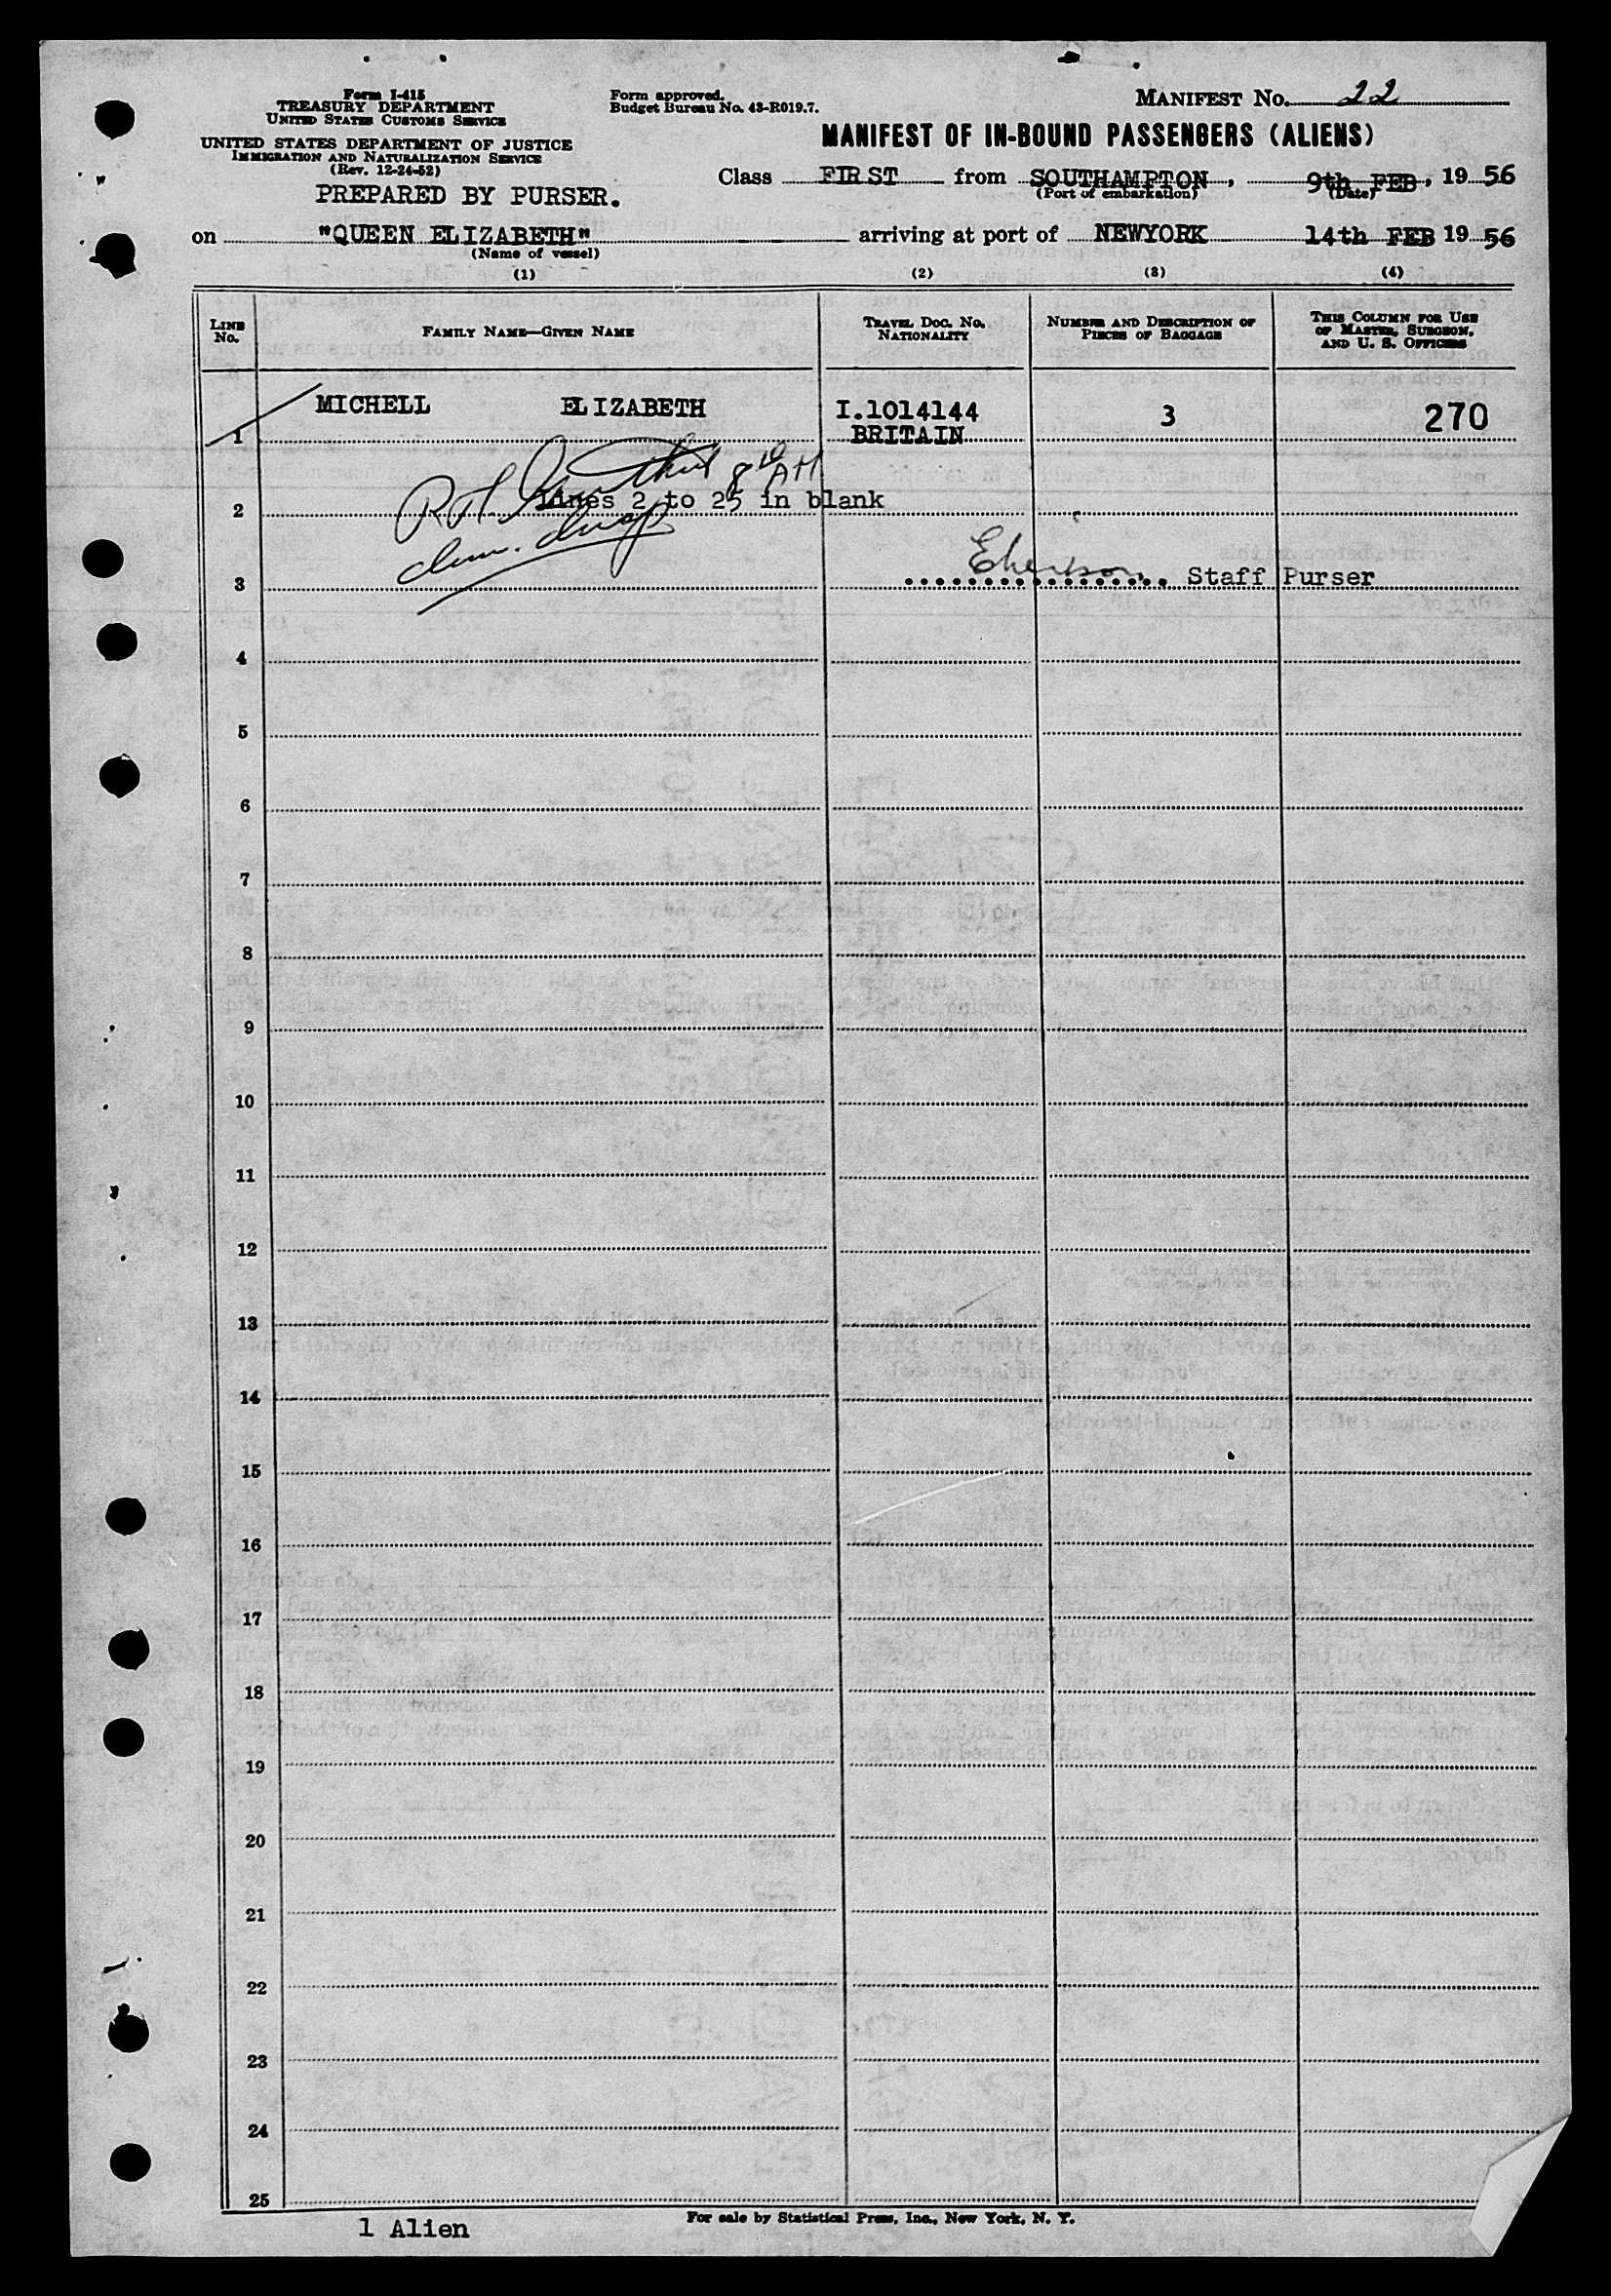 Form I-415
TREASURY DEPARTMENT
UNITED STATES CUSTOMS SERVICE
UNITED STATES DEPARTMENT OF JUSTICE
IMMIGRATION AND NATURALIZATION SERVICE
(Rev. 12-24-52)
PREPARED BY PURSER.
Form approved.
Budget Bureau No. 43-R019.7.
MANIFEST NO. 22
MANIFEST OF IN-BOUND PASSENGERS (ALIENS)
Class FIRST from SOUTHAMPTON, 9th FEB, 19 56
(Port of embarkation) (Date)
on "QUEEN ELIZABETH" arriving at port of NEWYORK 14th FEB 19 56
(Name of vessel)
(1) (2) (3) (4)
LINE NO. FAMILY NAME—GIVEN NAME TRAVEL DOC. NO. NATIONALITY NUMBER AND DESCRIPTION OF PIECES OF BAGGAGE THIS COLUMN FOR USE OF MASTER, SURGEON, AND U. S. OFFICERS
1 MICHELL ELIZABETH I.1014144 BRITAIN 3 270
2 Lines 2 to 25 in blank
3 Staff Purser
4
5
6
7
8
9
10
11
12
13
14
15
16
17
18
19
20
21
22
23
24
25
1 Alien
For sale by Statistical Press, Inc., New York, N. Y.